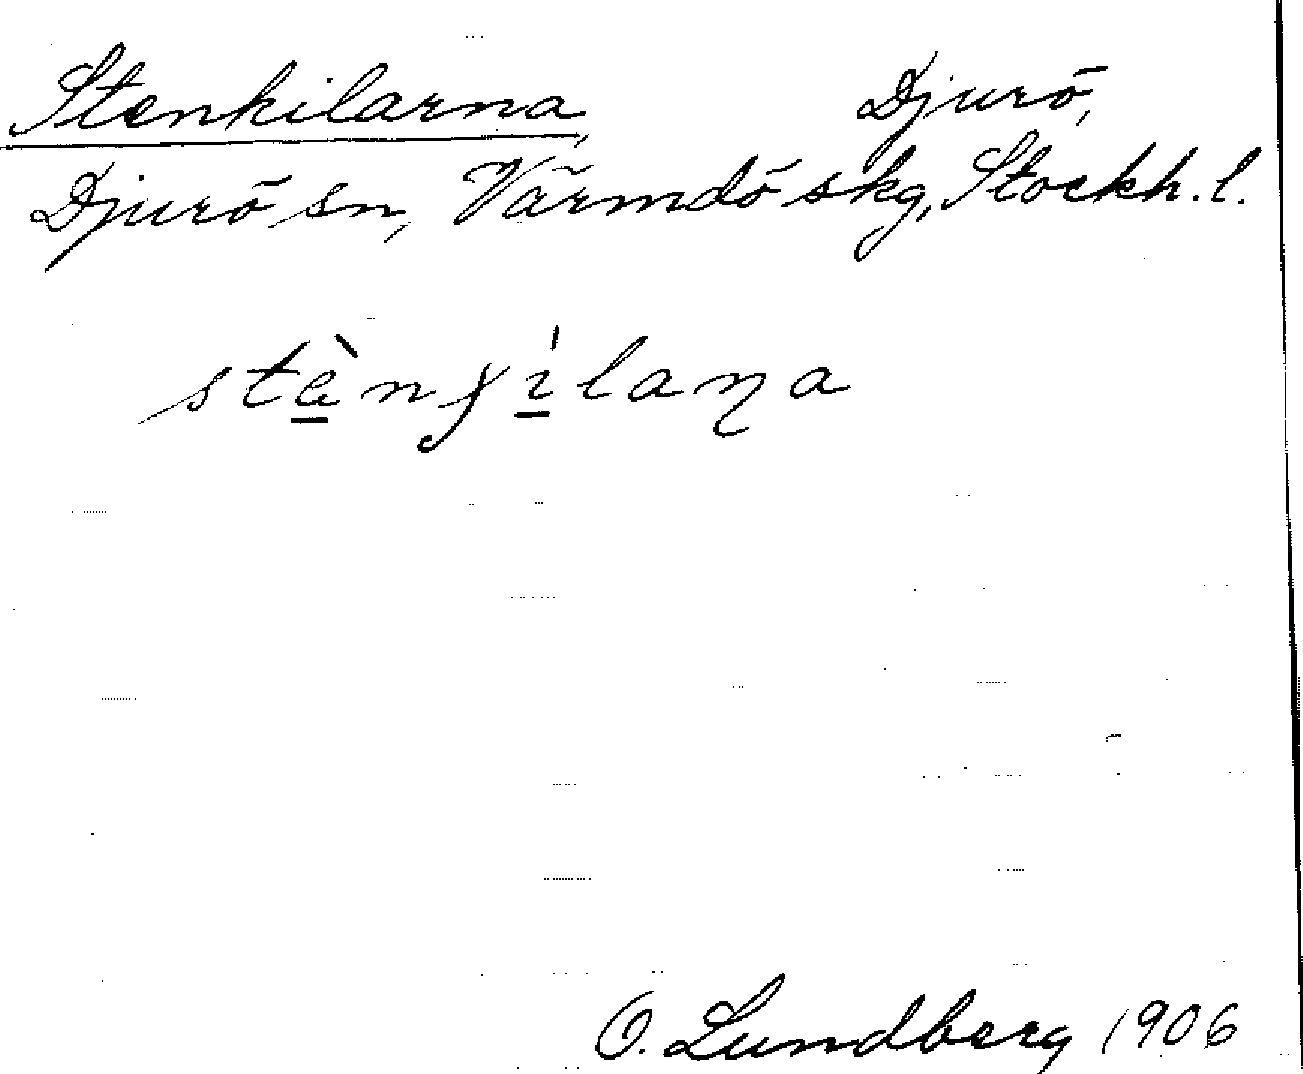 Stenkilarna, Djurö,
Djurö sn, Värmdö skg, Stockh. l.
stènɟílaɳa
O. Lundberg 1906